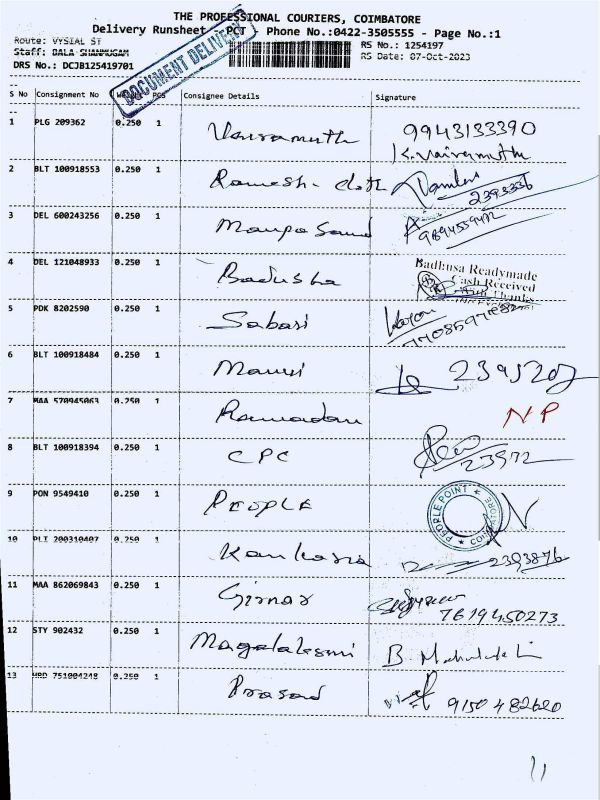 THE PROFESSIONAL COURIERS, COIMBATORE
Delivery Runsheet - PCT Phone No.:0422-3505555 - Page No.:1
DOCUMENT DELIVERY
Route: VYSIAL ST RS No : 1254197
Staff: BALA SHANMUGAM RS Date: 07-Oct-2023
DRS No.: DCJB125419701
S No Consignment No Weight PCS Consignee Details Signature
1 PLG 209362 0.250 1 Vairamuthu 9943133390
K. Vairamuthu
2 BLT 100918553 0.250 1 Ramesh cloth 2393336
3 DEL 600243256 0.250 1
4 DEL 121048933 0.250 1 Badusha Badhusa Readymade
Cash Received
5 PDK 8202590 0.250 1 Sabari
6 BLT 100918484 0.250 1 2395207
7 MAA 570945063 0.250 1 Ramadan N P
8 BLT 100918394 0.250 1 CPC 23972
9 PON 9549410 0.250 1 PEOPLE PEOPLE POINT
10 PLI 200310407 0.250 1 Kankaria 2393876
11 MAA 862069843 0.250 1 Girnar 7619450273
12 STY 902432 0.250 1 Magalakshmi B.
13 HRD 751004248 0.250 1 Prasad 9150482620
11